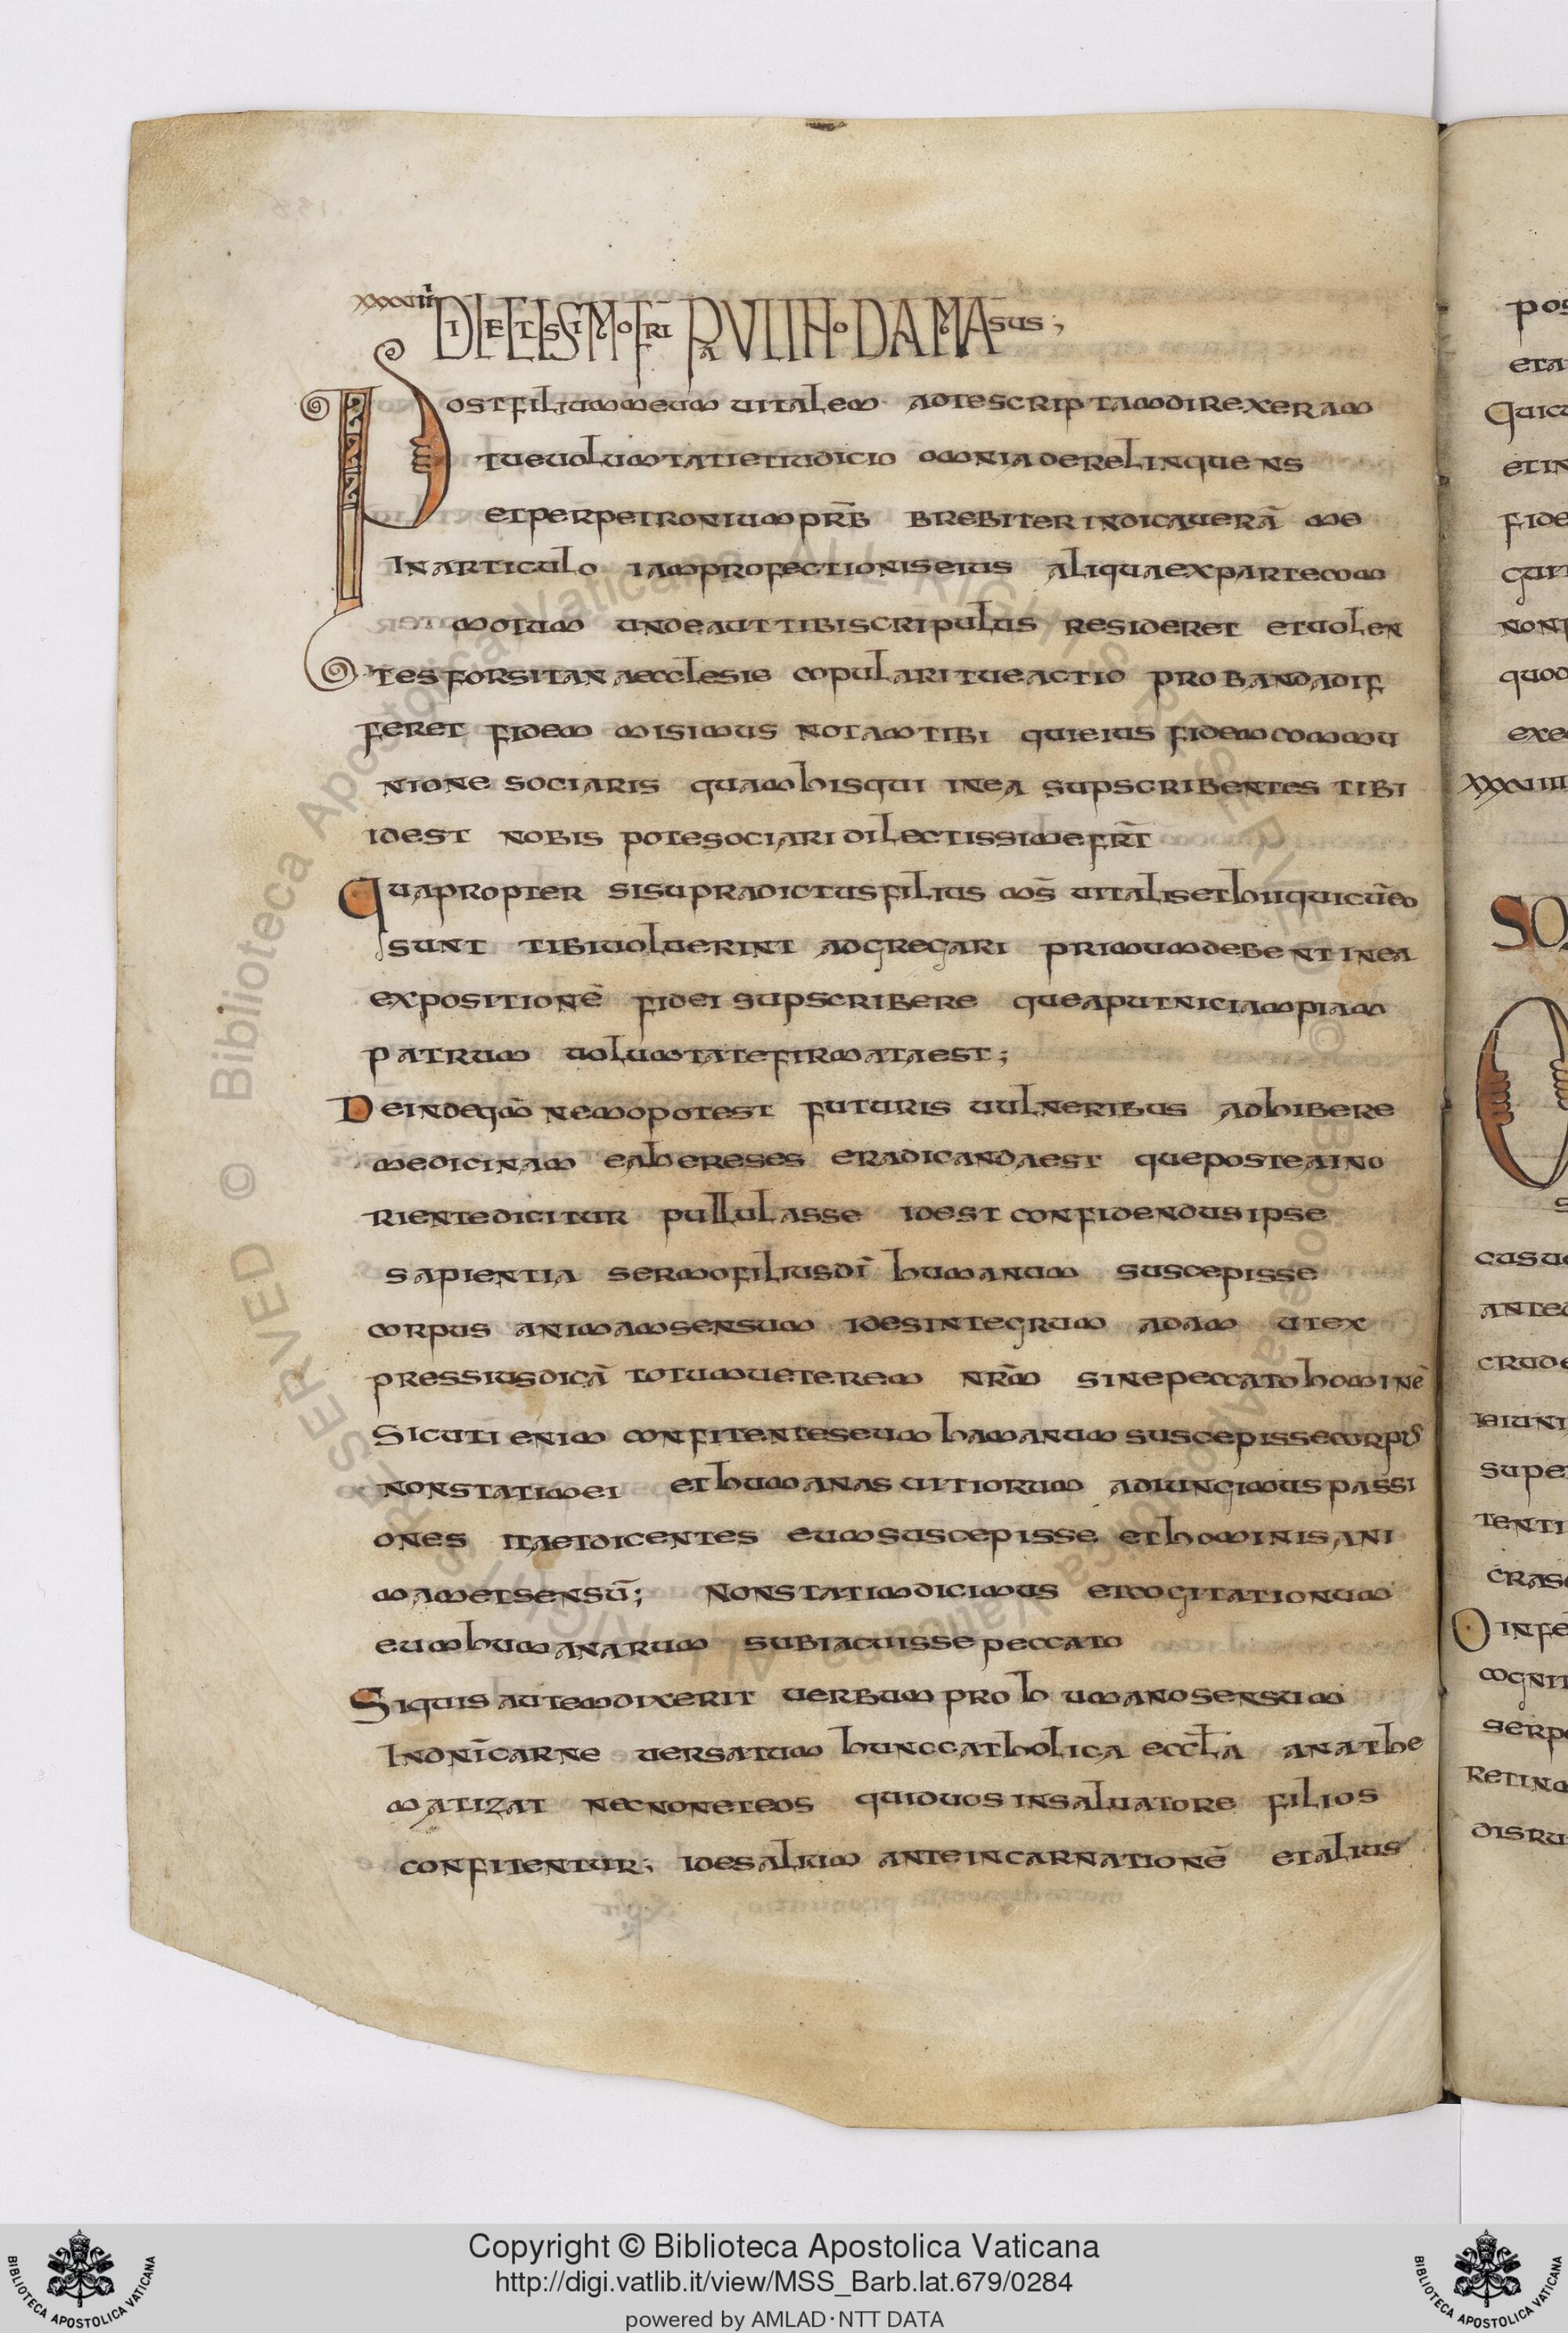 xxxviii DILECTISSIMO FRI PAVLINO DAMASUS;
Post filium meum uitalem ad te scriptam direxeram
tue uolumtati et iudicio omnia derelinquens
et per petronium prb̄ brebiter indicauerā me
In articulo iam profectionis eius aliqua ex parte com
motum unde aut tibi scripulus resideret et uolen
tes forsitan aecclesie copulari tue actio probanda dif
feret fidem misimus notam tibi qui eius fidem commu
nione sociaris quam his qui in ea supscribentes tibi
id est nobis pote sociari dilectissime fr̄t
Quapropter si supradictus filius ms̄ uitalis et hii qui cū eo
sunt tibi uoluerint adgregari primum debent in ea
expositionē fidei supscribere que aput niciam piam
patrum uolumtate firmata est;
Deinde qm̄ nemo potest futuris uulneribus adhibere
medicinam ea hereses eradicanda est que postea in o
riente dicitur pullulasse id est confidendus ipse
sapientia sermo filius dī humanum suscepisse
corpus animam sensum ides integrum adam ut ex
pressius dicā totum ueterem nr̄m sine peccato hominē
Sicuti enim confitentes eum hamanum suscepisse corpus
non statim ei et humanas uitiorum adiungimus passi
ones ita et dicentes eum suscepisse et hominis ani
mam et sensū; Non statim dicimus et cogitationum
eum humanarum subiacuisse peccato
Si quis autem dixerit uerbum pro humano sensum
In dnī carne uersatum hunc catholica eccl̄a anathe
matizat necnon et eos qui duos in saluatore filios
confitentur; ides alium ante incarnationē et alius
Copyright © Biblioteca Apostolica Vaticana
http://digi.vatlib.it/view/MSS_Barb.lat.679/0284
powered by AMLAD·NTT DATA